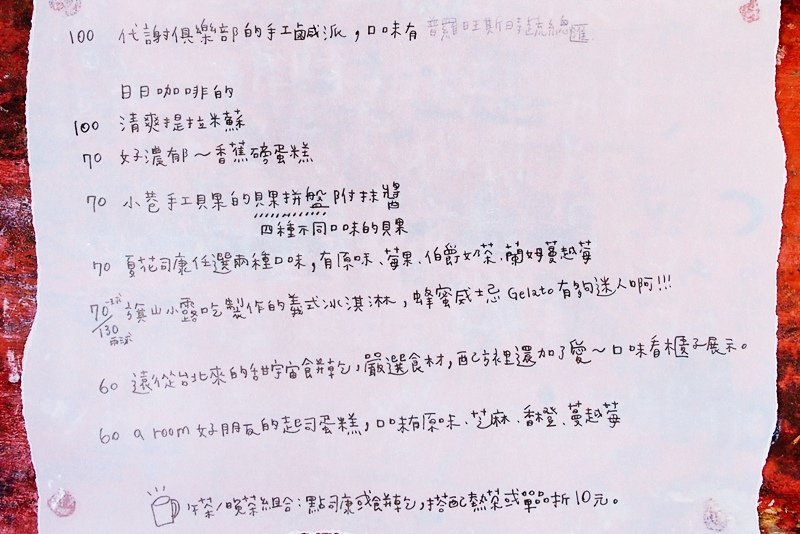 100 代謝俱樂部的手工鹹派，口味有 普羅旺斯時蔬總匯
日日咖啡的
100 清爽提拉米蘇
70 好濃郁～香蕉磅蛋糕
70 小巷手工貝果的貝果拼盤 附抹醬
四種不同口味的貝果
70 夏花司康任選兩種口味，有原味、莓果、伯爵奶茶、蘭姆蔓越莓
70一球/130兩球 旗山小露吃製作的義式冰淇淋，蜂蜜威士忌 Gelato 有夠迷人啊!!!
60 遠從台北來的甜宇宙餅乾，嚴選食材，配方裡還加了愛～口味看櫃子展示。
60 a room 好朋友的起司蛋糕，口味有原味、芝麻、香橙、蔓越莓
午茶/晚茶組合：點司康或餅乾，搭配熱茶或單品折10元。